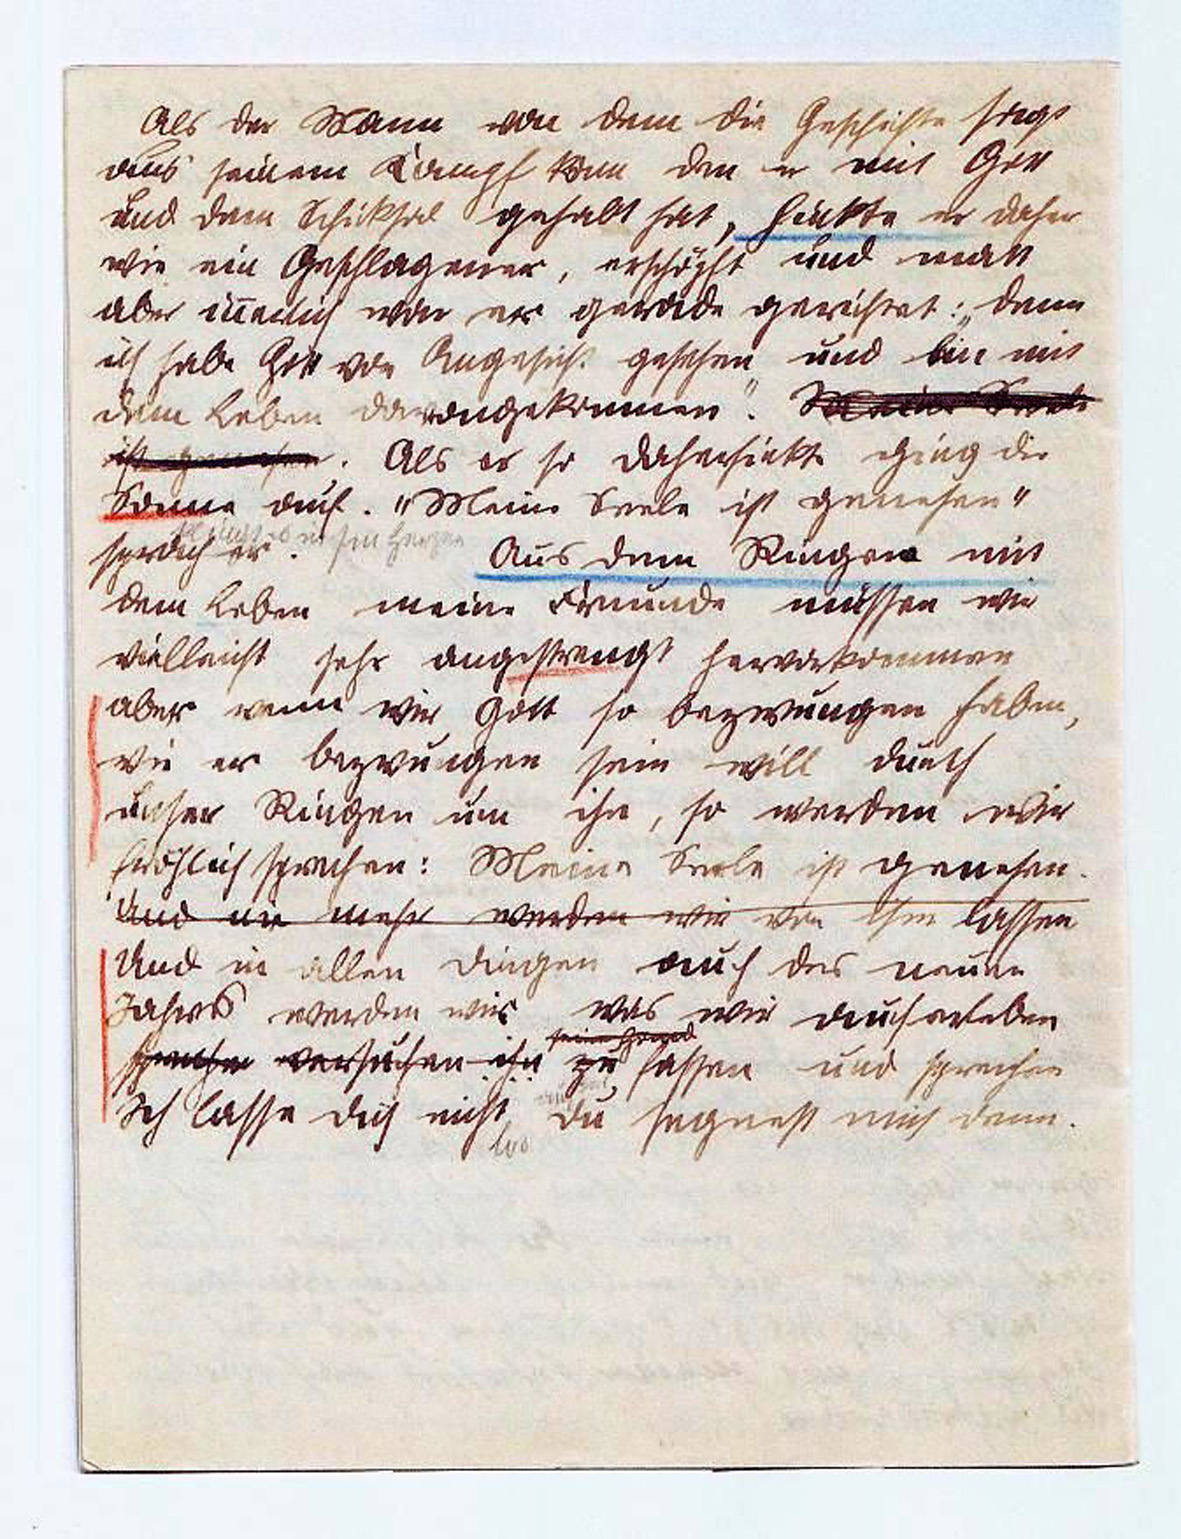 Als der Mann von dem die Geschichte sagt
aus seinem Kampf kam den er mit Gott
und dem Schicksal gehabt hat, hinkte er daher
wie ein Geschlagener, erschöpft und matt
aber innerlich war er gerade gerichtet: „denn
ich habe Gott von Angesicht gesehen und bin mit
dem Leben davongekommen". Meine Seele
ist genesen. Als er so daherhinkte ging die
Sonne auf. "Meine Seele ist genesen"
sprach er. in sein Herzen Aus dem Ringen mit
dem Leben meine Freunde müssen wir
vielleicht sehr angestrengt hervorkommen
aber wenn wir Gott so bezwungen haben,
wie er bezwungen sein will durch
unser Ringen um ihn, so werden wir
fröhlich sprechen: Meine Seele ist genesen.
Und nie mehr werden wir von ihm lassen
Und in allen Dingen auch des neuen
Jahres werden wir was wir auch erleben
seine Hand
sprechen versuchen ihn zu fassen und sprechen
Ich lasse dich nicht Du segnest mich denn.
los